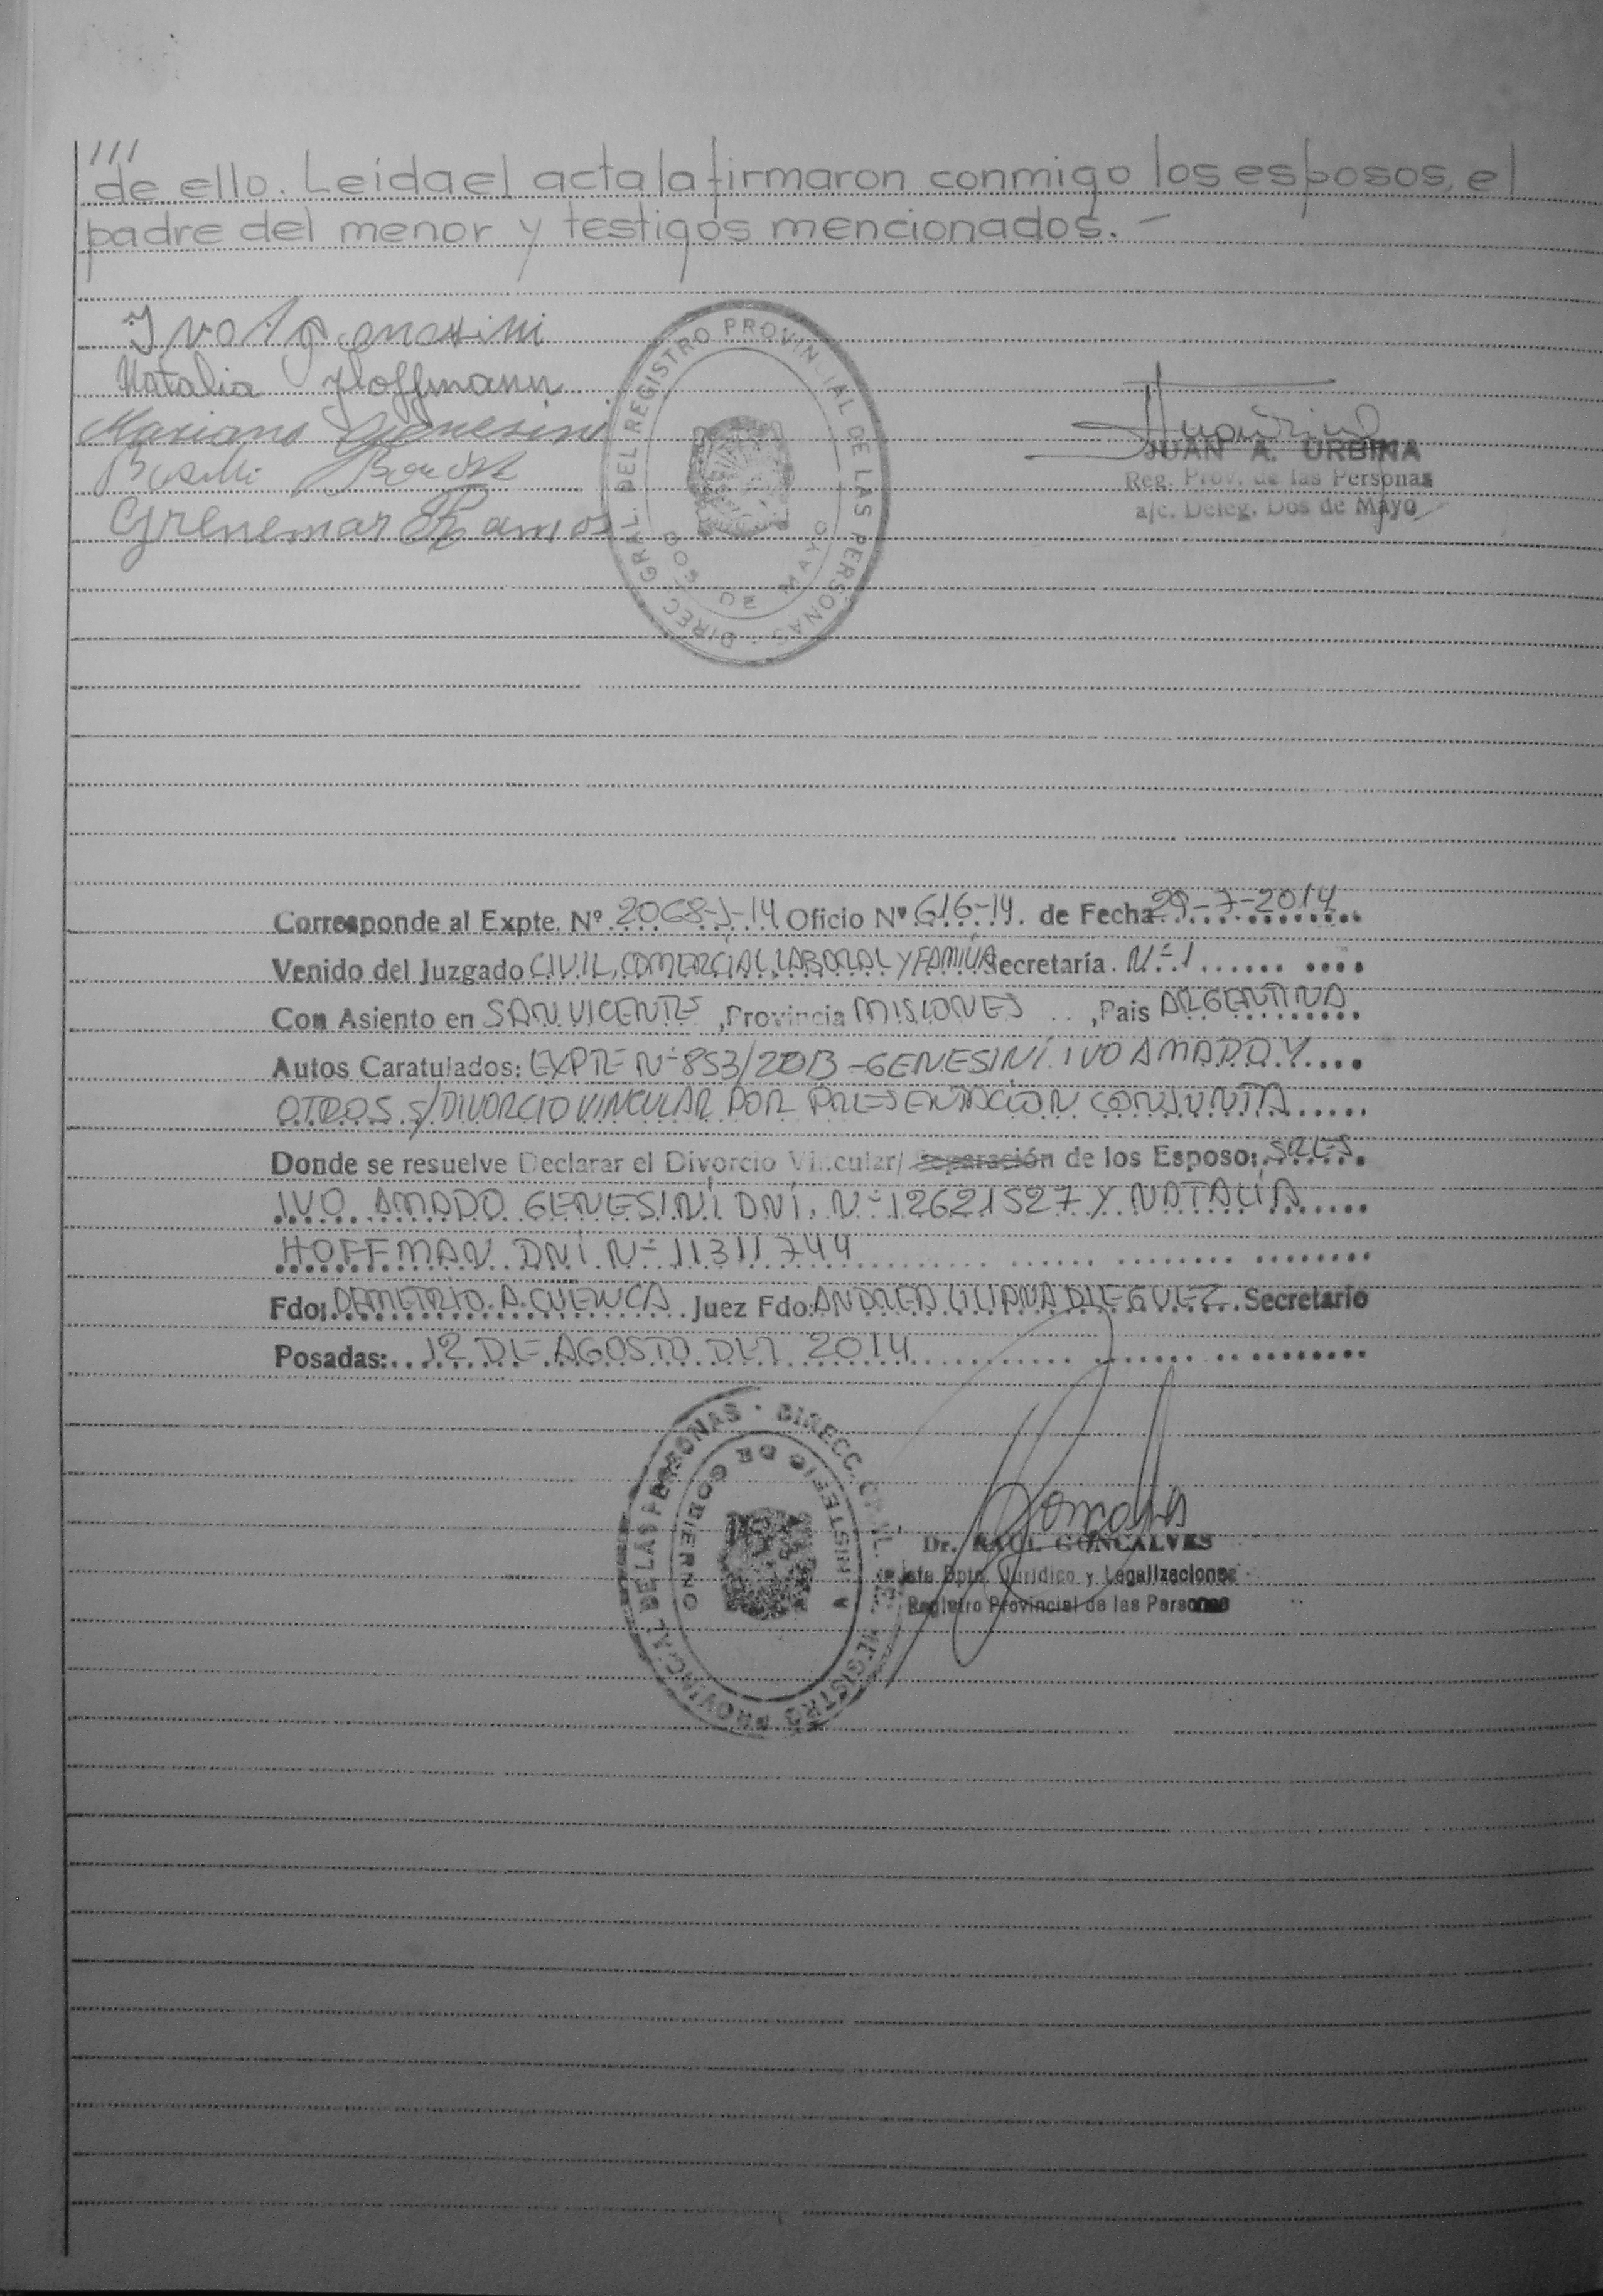 ///
de ello. Leída el acta la firmaron conmigo los esposos, el
padre del menor y testigos mencionados. —
Ivo A Genesini
Natalia Hoffmann
Mariano Genesini
Ramos
DIREC. GRAL. DEL REGISTRO PROVINCIAL DE LAS PERSONAS
DOS DE MAYO
JUAN A. URBINA
Reg. Prov. de las Personas
a/c. Deleg. Dos de Mayo
Corresponde al Expte. Nº 2068-J-14 Oficio Nº 616-14. de Fecha 29-7-2014
Venido del Juzgado CIVIL, COMERCIAL, LABORAL Y FAMILIA Secretaría. Nº 1
Con Asiento en SAN VICENTE, Provincia MISIONES, Pais ARGENTINA
Autos Caratulados: EXPTE Nº 853/2013 - GENESINI IVO AMADO Y
OTROS S/DIVORCIO VINCULAR POR PRESENTACION CONJUNTA
Donde se resuelve Declarar el Divorcio Vincular/ Separación de los Esposo: SRES
IVO AMADO GENESINI DNI. Nº 12621527 Y NATALIA
HOFFMAN DNI Nº 11311744
Fdo: DEMETRIO A. CUENCA Juez Fdo: ANDREA LILIANA DIEGUEZ Secretario
Posadas: 12 DE AGOSTO DEL 2014
DIRECC. GRAL. DEL REGISTRO PROVINCIAL DE LAS PERSONAS
MINISTERIO DE GOBIERNO
Dr. RAUL GONCALVES
Jefe Dpto. Jurídico y Legalizaciones
Registro Provincial de las Personas